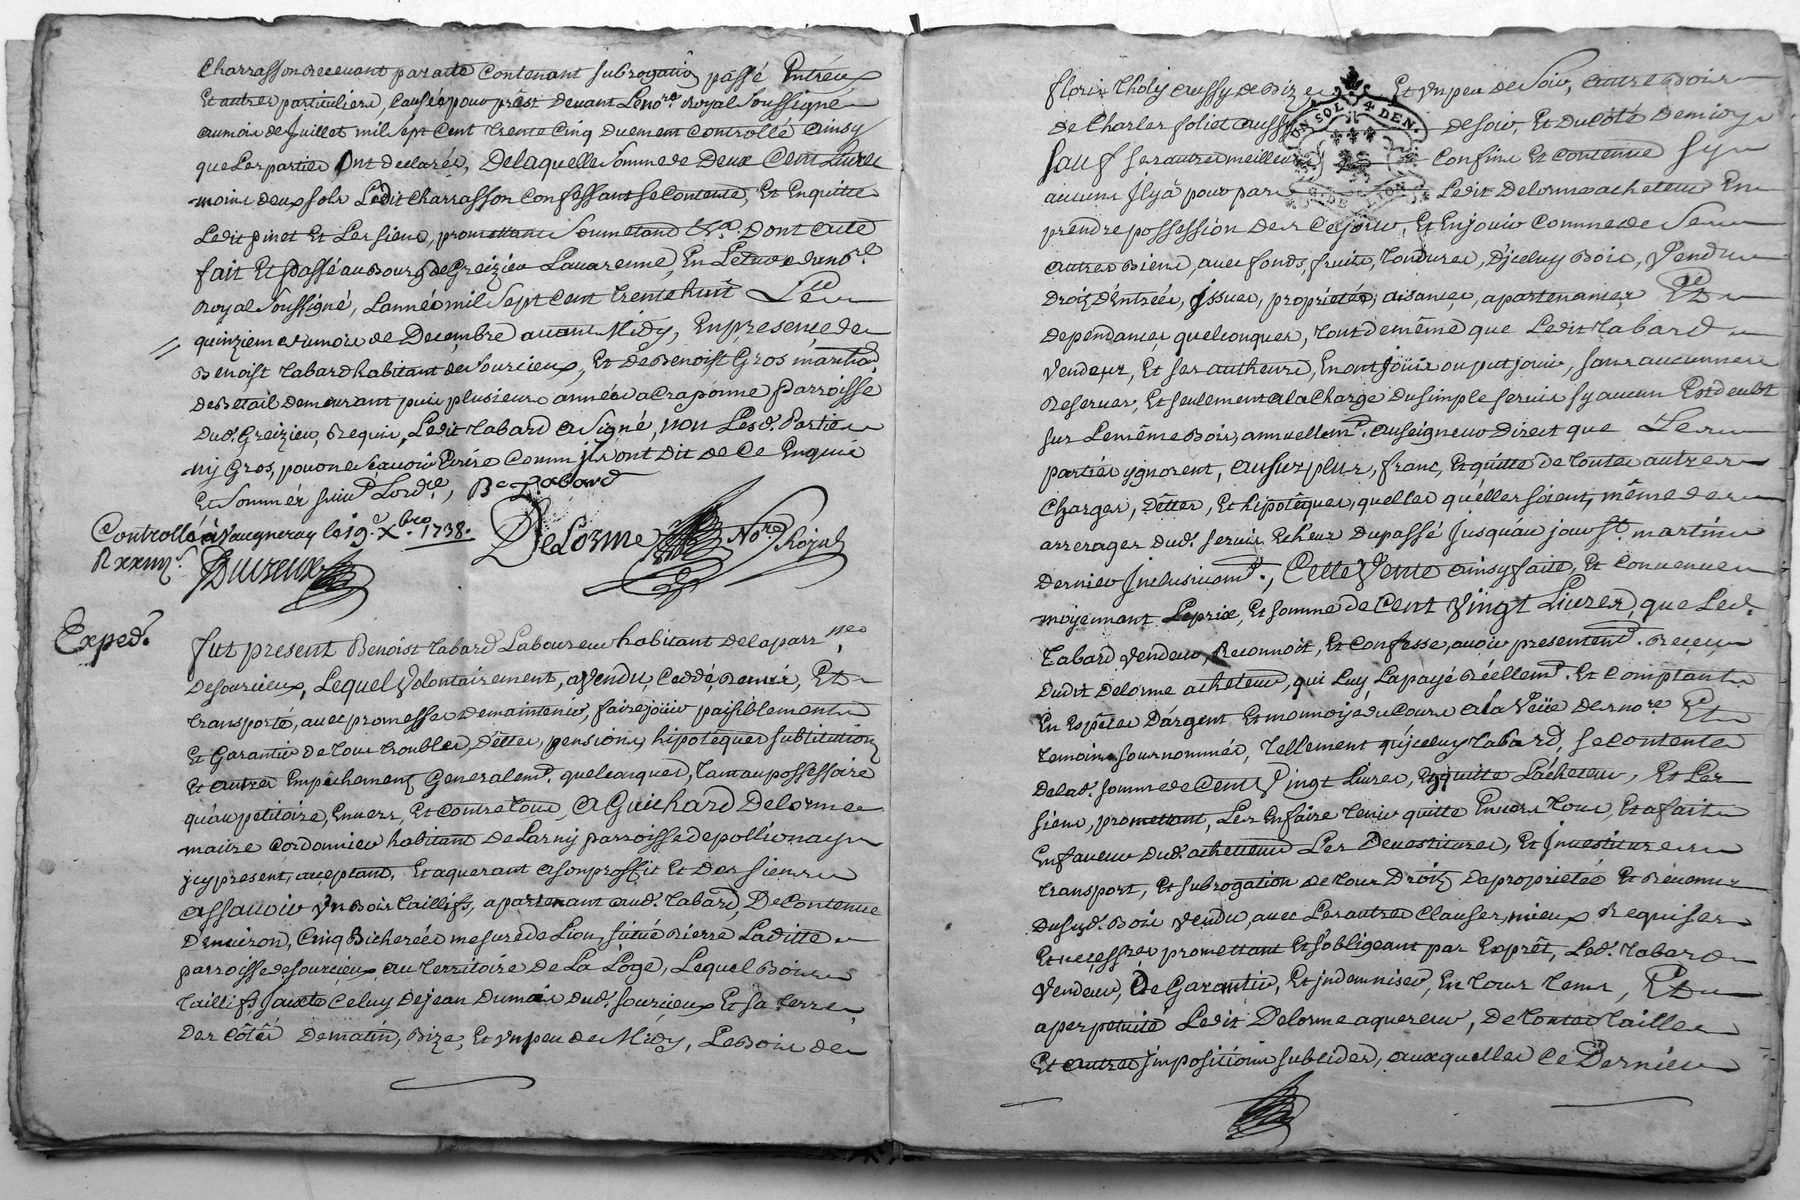 Charrasson Recevant par acte Contenant subrogatiõ passé Entreux
Et autres particuliers, Causée pour prest devant Le no.re Royal soussigné
au mois de Juillet mil sept Cent trente Cinq duement Controllé ainsy
que Les parties ont declarées, De laquelle somme de Deux Cent Livres
moins deux sols Ledit Charrasson Confessant se Contente, Et Enquitte
Ledit pinet Et Les siens, promettans soumetans &.a. Dont acte
fait Et passé au Bourg de Greizieu Lavarenne, En Letude du no.re
Royal soussigné, L'année mil sept Cent trente huit Et Le
quinzieme du mois de Decembre avant Midy, En presence de
Benoist tabard habitant de sourcieux, Et de Benoist Gros marchad
de Betail demeurant puis plusieurs années a Craponne parroisse
dud. Greizieu, Requis, Ledit tabard a signé, non Lesd. Parties
ny Gros, pour ne sçavoir Ecrire Comm'ils ont dit de Ce Enquis
Et sommés suiv.t Lord.ce, B.e Tabard
Controllé à Vaugneray le 19.e X.bre 1738. DeLorme No.re Royal
R xxiiij s. Ducreux
Exped.e
fut present Benoist tabard Laboureur habitant de la parr.sse
de sourcieux, Lequel Volontairement, a Vendu, Ceddé, Remis, Et
transporté, avec promesse de maintenir, faire jouir paisiblement
Et Garantir de tous troubles, dettes, pensions, hipotêques substitutions
Et autres Empêchement Generalem.t quelconques, tant au possessoire
qu'au petitoire, Envers, Et Contre tous, A Guichard Delorme
maitre Cordonnier habitant de Larny parroisse de pollionay
icy present, aceptant, Et aquerant a son proffit Et des siens
assavoir Un Bois taillifs, apartenant aud. tabard, De Contenue
D'environ, Cinq Bicherées mesure de Lion, situé Rierre Laditte
parroisse de sourcieux au territoire de La Loge, Lequel Bois
taillifs jouxte Celuy de jean Dumas dud. sourcieux Et sa terre
Des Côtés De matin, Bize, Et Un peu de Midy, Le Bois de
floris tholy aussy de Bize Et Un peu de soir, autre Bois
de Charles foliet aussy de soir, Et du Coté de midy
sauf ses autres meilleurs Confins Et Contenue sy
aucuns Il y a pour par Ledit Delorme acheteur En
prendre possession des Ce jour, Et En jouir Comme de ses
autres Biens, avec fonds, fruits, tondures, d'iceluy Bois, Vendu
Droits d'Entrée, issues, proprietés, aisances, apartenances Et
dependances quelconques, tout de même que Ledit tabard
Vendeur, Et ses autheurs, En ont joüis ou put jouir, sans aucunnes
Reserves, Et seulement a la Charge du simple servis sy aucun Est deubt
sur Le même Bois, annuellem.t au seigneur Direct que Les
parties ygnorent, au surplus, franc, Et quitte de toutes autres
Charges, Dettes, Et hipotêques, quelles qu'elles soient, même des
arrerages dud. servis Echeus du passé Jusqu'au jour st. martin
dernier Inclusivem.t, Cette Vente ainsy faite, Et Convenue
moyennant Le prix, Et somme de Cent Vingt Livres, que Led.
tabard Vendeur, Reconnoit, Et Confesse, avoir presentem.t Reçeu
dudit Delorme acheteur, qui Luy La payé Réellem.t Et Comptant
En Espêces D'argent Et monnoye du Cours a la Veüe des no.re Et
temoins sousnommés, tellement qu'iceluy tabard, se Contente
de lad. somme de Cent Vingt Livres, En quitte L'acheteur, Et Les
siens, promettant, Les En faire tenir quitte Envers tous, Et a fait
En faveur dud. acheteur Les Devestitures, Et Investitures
transport, Et subrogation de tous Droits De proprietée Et Révenus
du susd. Bois Vendu, avec Les autres Clauses, mieux Requises
Et neçess.res promettant Et s'obligeant par Exprêt, Led. tabard
Vendeur, De Garantir, Et indemniser, En tous tems, Et
a perpetuité Ledit Delorme aquereur, De toutes tailles
Et autres impositions subcides, auxquelles Ce Dernier
UN SOL 4 DEN.